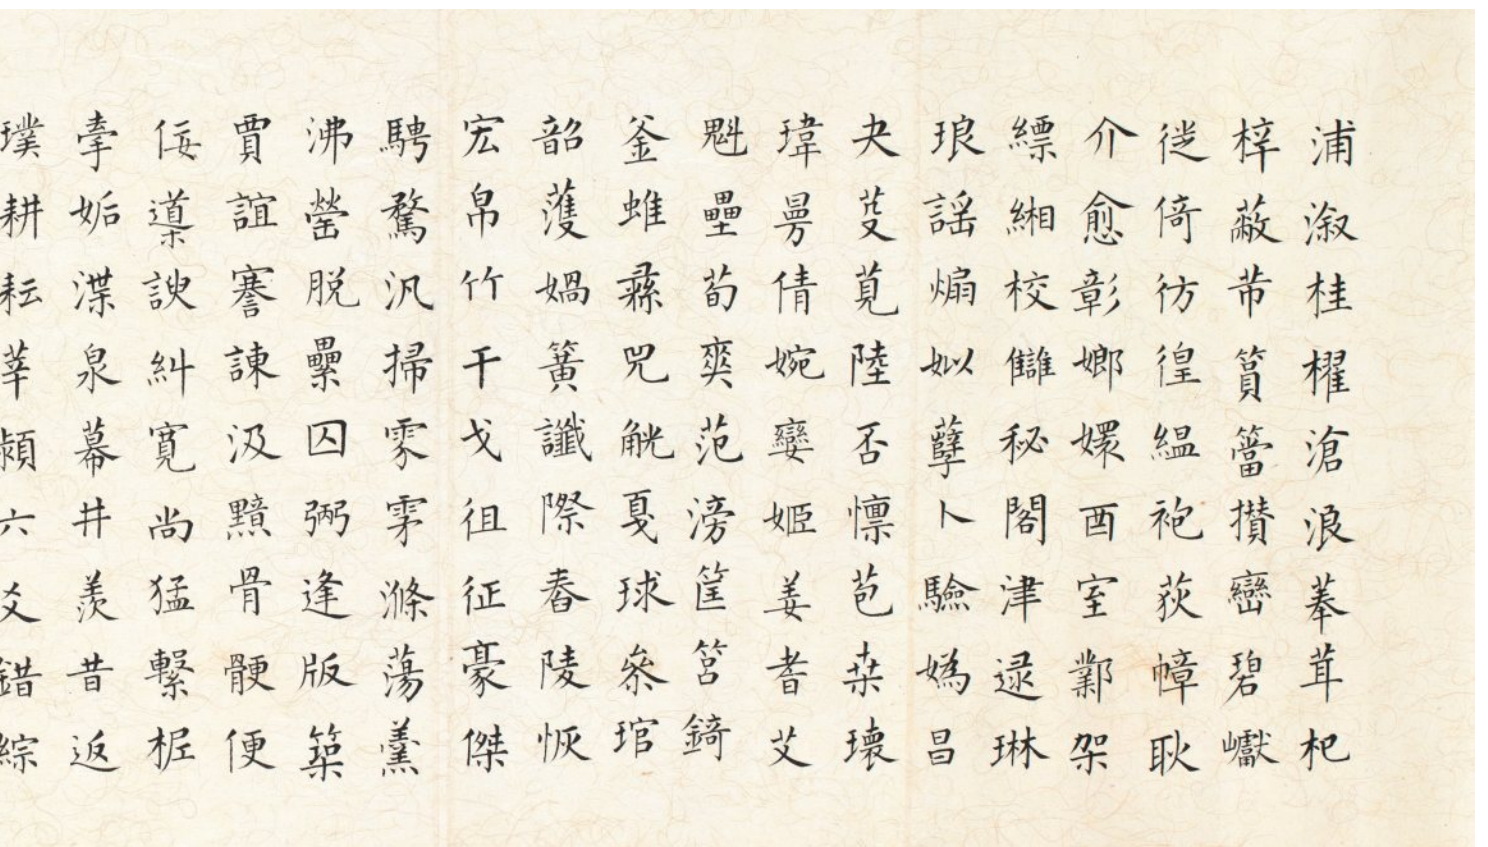 浦溆桂櫂滄浪菶茸杞
梓蔽芾篔簹攢巒碧巘
徙倚彷徨緼袍荻幛耿
介愈彰嫏嬛酉室酆架
縹緗校讎秘閣津逯琳
琅謡煽姒孽卜驗媯昌
夬芟莧陸否懍苞桒瓌
瑋曼倩婉孌姬姜耆艾
魁壘荀奭范滂筐筥錡
釜蜼彞兕觥戛球叅琯
韶蒦媧簧讖際春陵恢
宏帛竹干戈徂征豪傑
騁騖汎掃雺雺滌蕩羹
沸罃脱纍囚弼逢版築
賈誼謇諫汲黯骨骾便
佞導諛糾寬尚猛繫柅
牽姤渫泉幕井羨昔返
璞耕耘莘潁六爻錯綜